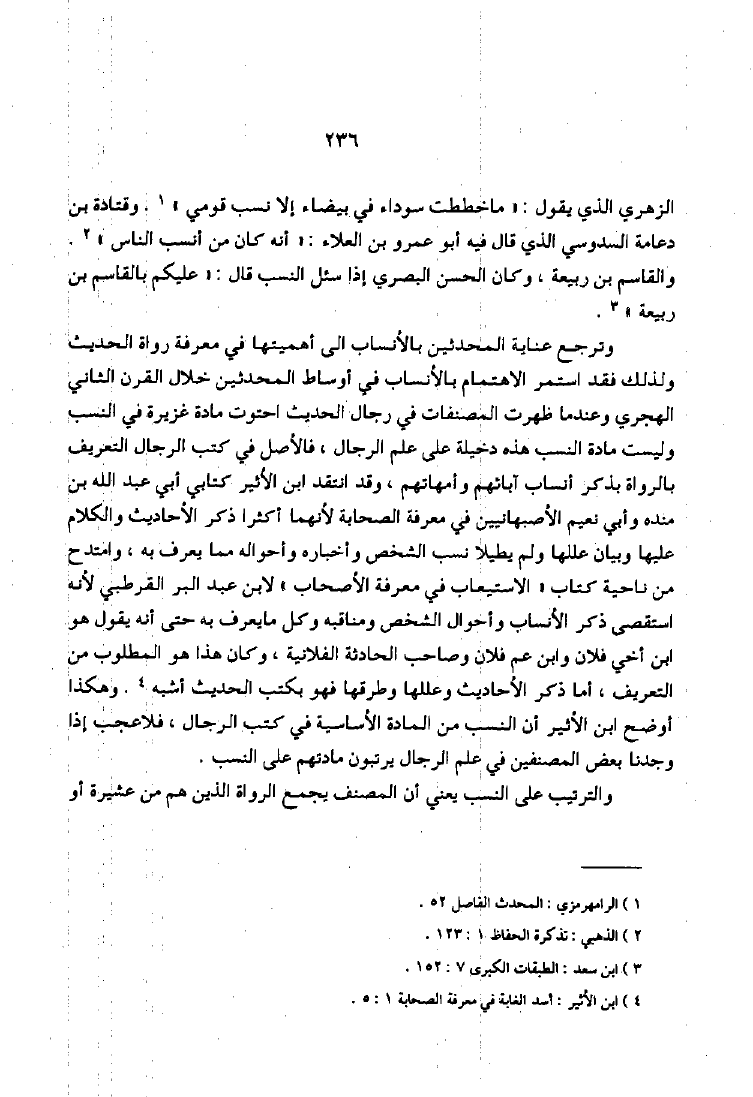 ٢٣٦
الزهري الذي يقول : « ماخططت سوداء في بيضاء إلا نسب قومي » ١ . وقتادة بن
دعامة السدوسي الذي قال فيه أبو عمرو بن العلاء : « أنه كان من أنسب الناس » ٢ .
والقاسم بن ربيعة ، وكان الحسن البصري إذا سئل النسب قال : « عليكم بالقاسم بن
ربيعة » ٣ .
وترجع عناية المحدثين بالأنساب الى أهميتها في معرفة رواة الحديث
ولذلك فقد استمر الاهتمام بالأنساب في أوساط المحدثين خلال القرن الثاني
الهجري وعندما ظهرت المصنفات في رجال الحديث احتوت مادة غزيرة في النسب
وليست مادة النسب هذه دخيلة على علم الرجال ، فالأصل في كتب الرجال التعريف
بالرواة بذكر أنساب آبائهم وأمهاتهم ، وقد انتقد ابن الأثير كتابي أبي عبد الله بن
منده وأبي نعيم الأصبهانيين في معرفة الصحابة لأنهما أكثرا ذكر الأحاديث والكلام
عليها وبيان عللها ولم يطيلا نسب الشخص وأخباره وأحواله مما يعرف به ، وامتدح
من ناحية كتاب « الاستيعاب في معرفة الأصحاب » لابن عبد البر القرطبي لأنه
استقصى ذكر الأنساب وأحوال الشخص ومناقبه وكل مايعرف به حتى أنه يقول هو
ابن أخي فلان وابن عم فلان وصاحب الحادثة الفلانية ، وكان هذا هو المطلوب من
التعريف ، أما ذكر الأحاديث وعللها وطرقها فهو بكتب الحديث أشبه ٤ . وهكذا
أوضح ابن الأثير أن النسب من المادة الأساسية في كتب الرجال ، فلاعجب إذا
وجدنا بعض المصنفين في علم الرجال يرتبون مادتهم على النسب .
والترتيب على النسب يعني أن المصنف يجمع الرواة الذين هم من عشيرة أو
١ ) الرامهرمزي : المحدث الفاصل ٥٢ .
٢ ) الذهبي : تذكرة الحفاظ ١ : ١٢٣ .
٣ ) ابن سعد : الطبقات الكبرى ٧ : ١٥٢ .
٤ ) ابن الأثير : أسد الغابة في معرفة الصحابة ١ : ٥ .